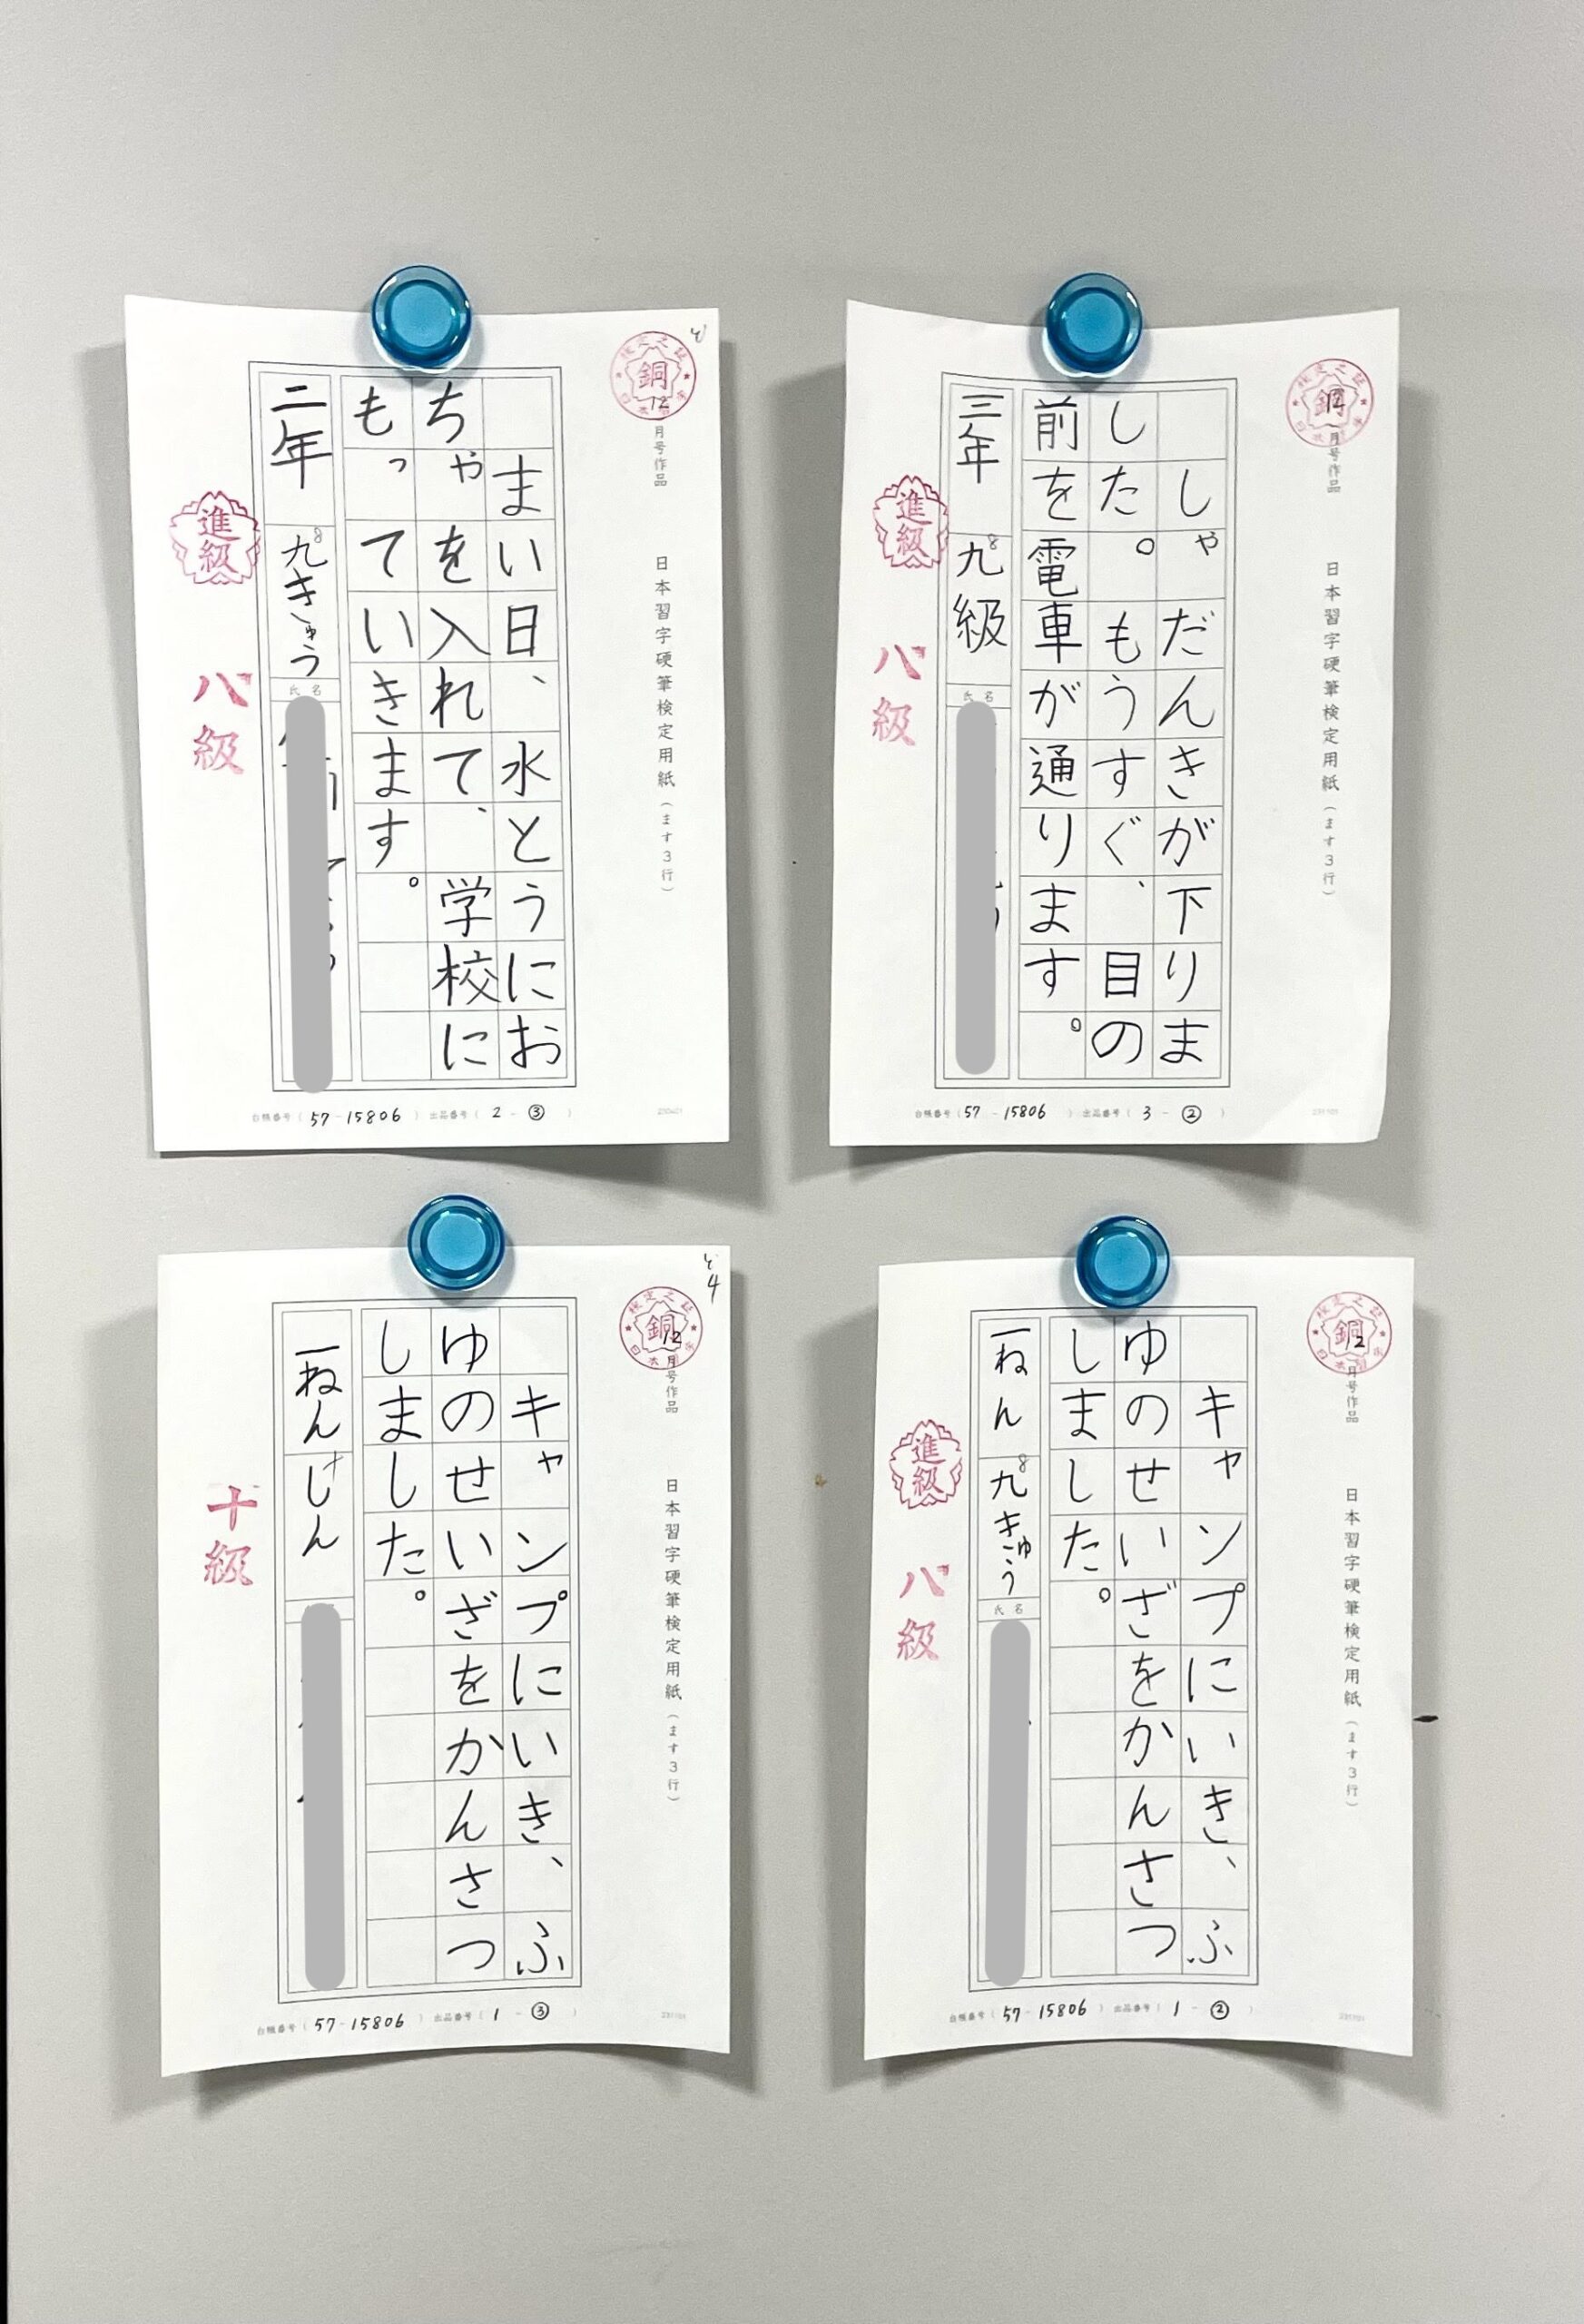 検定之証
銅
12
月号作品
日本習字硬筆検定用紙(ます3行)
まい日、水とうにお
ちゃを入れて、学校に
もっていきます。
二年
九きゅう
8
氏名
進級
八級
台帳番号(57-15806)出品番号(2-③)
検定之証
12
月号作品
日本習字硬筆検定用紙(ます3行)
しゃだんきが下りま
した。もうすぐ、目の
前を電車が通ります。
三年
九級
8
氏名
進級
八級
台帳番号(57-15806)出品番号(3-②)
4
検定之証
銅
12
月号作品
日本習字硬筆検定用紙(ます3行)
キャンプにいき、ふ
ゆのせいざをかんさつ
しました。
一ねん
しん
十級
台帳番号(57-15806)出品番号(1-③)
検定之証
銅
12
月号作品
日本習字硬筆検定用紙(ます3行)
キャンプにいき、ふ
ゆのせいざをかんさつ
しました。
一ねん
九きゅう
8
氏名
進級
八級
台帳番号(57-15806)出品番号(1-②)